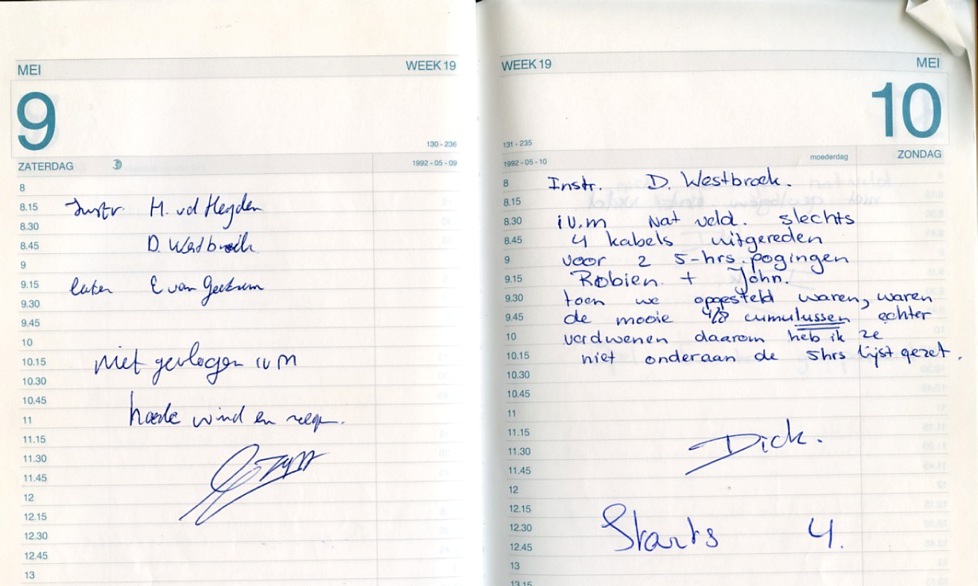 MEI WEEK 19
9
130 - 236
ZATERDAG 1992 - 05 - 09
8
8.15 Instr H. vd Heyden
8.30
8.45 D. Westbroek
9
9.15 later E van
9.30
9.45
10
10.15 niet gevlogen ivm
10.30
10.45
11 harde wind en regen.
11.15
11.30
11.45
12
12.15
12.30
12.45
13
WEEK 19 MEI
10
131 - 235
1992 - 05 - 10 moederdag ZONDAG
8 Instr. D. Westbroek.
8.15
8.30 i.v.m nat veld. slechts
8.45 4 kabels uitgereden
9 voor 2 5-hrs. pogingen
9.15 Robien + John.
9.30 toen we opgesteld waren, waren
9.45 de mooie 4/8 cumulussen echter
10 verdwenen daarom heb ik ze
10.15 niet onderaan de 5hrs lijst gezet.
10.30
10.45
11
11.15
11.30 Dick.
11.45
12
12.15
12.30 Starts 4.
12.45
13
13.15